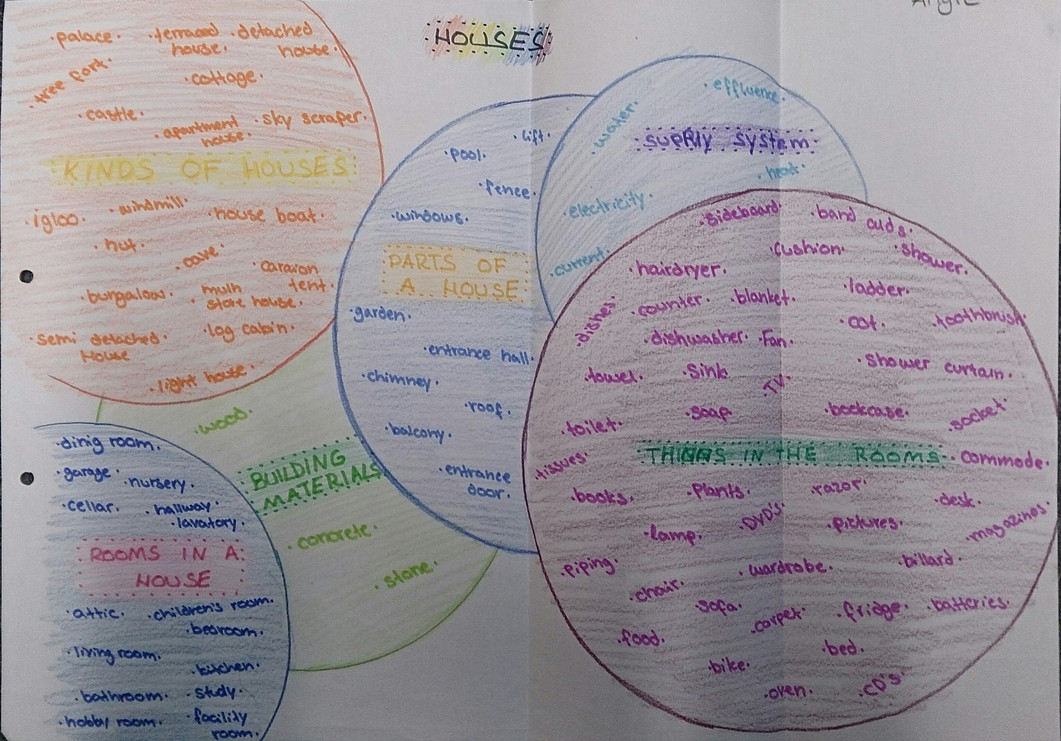 HOUSES
Angie
·palace·
·terraced house·
·detached house·
·tree fort·
·cottage·
·castle·
·apartment house·
·sky scraper·
KINDS OF HOUSES
·igloo·
·windmill·
·house boat·
·hut·
·cave·
·caravan
tent·
·bungalow·
·multi store house·
·semi detached House
·log cabin·
·light house·
·lift·
·pool·
·fence·
·windows·
PARTS OF
A HOUSE
·garden·
·entrance hall·
·chimney·
·roof·
·balcony·
·entrance door·
·effluence·
·water·
supply system
·heat·
·electricity·
·current·
·sideboard·
·band aids·
·cushion·
·shower·
·hairdryer·
·ladder·
·dishes·
·counter·
·blanket·
·cot·
·toothbrush·
·dishwasher·
·Fan·
·shower curtain·
·towel·
·Sink·
·TV·
·soap·
·bookcase·
·socket·
·toilet·
THINGS IN THE ROOMS
·commode·
·tissues·
·books·
·Plants·
·razor·
·desk·
·magazines·
·lamp·
·DVD's·
·pictures·
·piping·
·wardrobe·
·billard·
·chair·
·sofa·
·carpet·
·fridge·
·batteries·
·food·
·bed·
·bike·
·oven·
·CD's·
·wood·
BUILDING
MATERIALS
·concrete·
·stone·
·dinig room·
·garage·
·nursery·
·cellar·
·hallway·
·lavatory·
ROOMS IN A
HOUSE
·attic·
·children's room·
·bedroom·
·living room·
·kitchen·
·bathroom·
·study·
·hobby room·
·facility room·